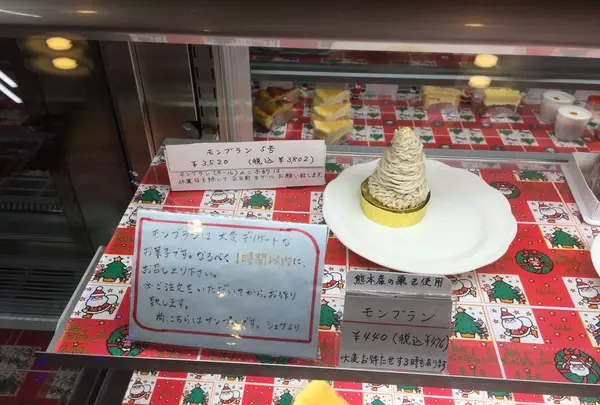 モンブラン 5号
¥3,520 (税込 ¥3,802)
モンブラン(ホール)のご予約は
休業日を除いて2日前までにお願い致します
モンブランは大変デリケートな
お菓子です。なるべく1時間以内に、
お召し上り下さい。
※ご注文をいただいてから、お作り
致します。
尚、こちらはサンプルです。シェフより
熊本産の栗を使用
モンブラン
¥440(税込¥476)
大変お待たせする時もあります